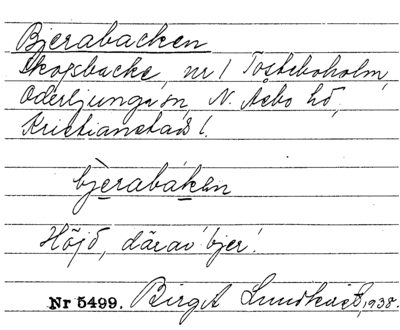 Bjerabacken
Skogsbacke, nr 1 Tosteboholm,
Oderljunga sn, N. Åsbo hd,
Kristianstads l.
bjèrabáken
Höjd, därav 'bjer'.
Nr 5499. Birgit Lundkvist, 1938.